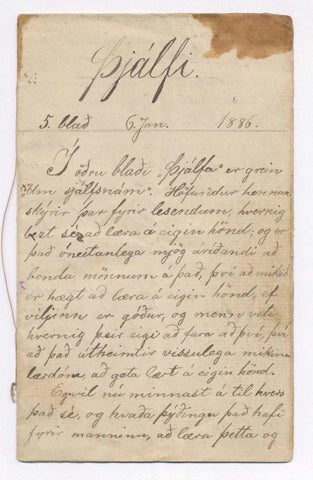 Þjálfi.
5. blað 6. Jan. 1886.
Í öðru blaði „Þjálfa" er grein
„Um sjálfsnám". Höfundur hennar
skýrir þar fyrir lesendum, hvernig
bezt sé að læra á eigin hönd, og er
það óneitanlega mjög áríðandi að
benda mönnum á það, því að mikið
er hægt að læra á eigin hönd, ef
viljinn er góður, og menn vita
hvernig þeir eigi að fara að því, því
að það útheimtir vissulega mikinn
lærdóm, að geta lært á eigin hönd.
Eg vil nú minnast á til hvers
það sé, og hvaða þýðingu það hafi
fyrir manninn, að læra þetta og